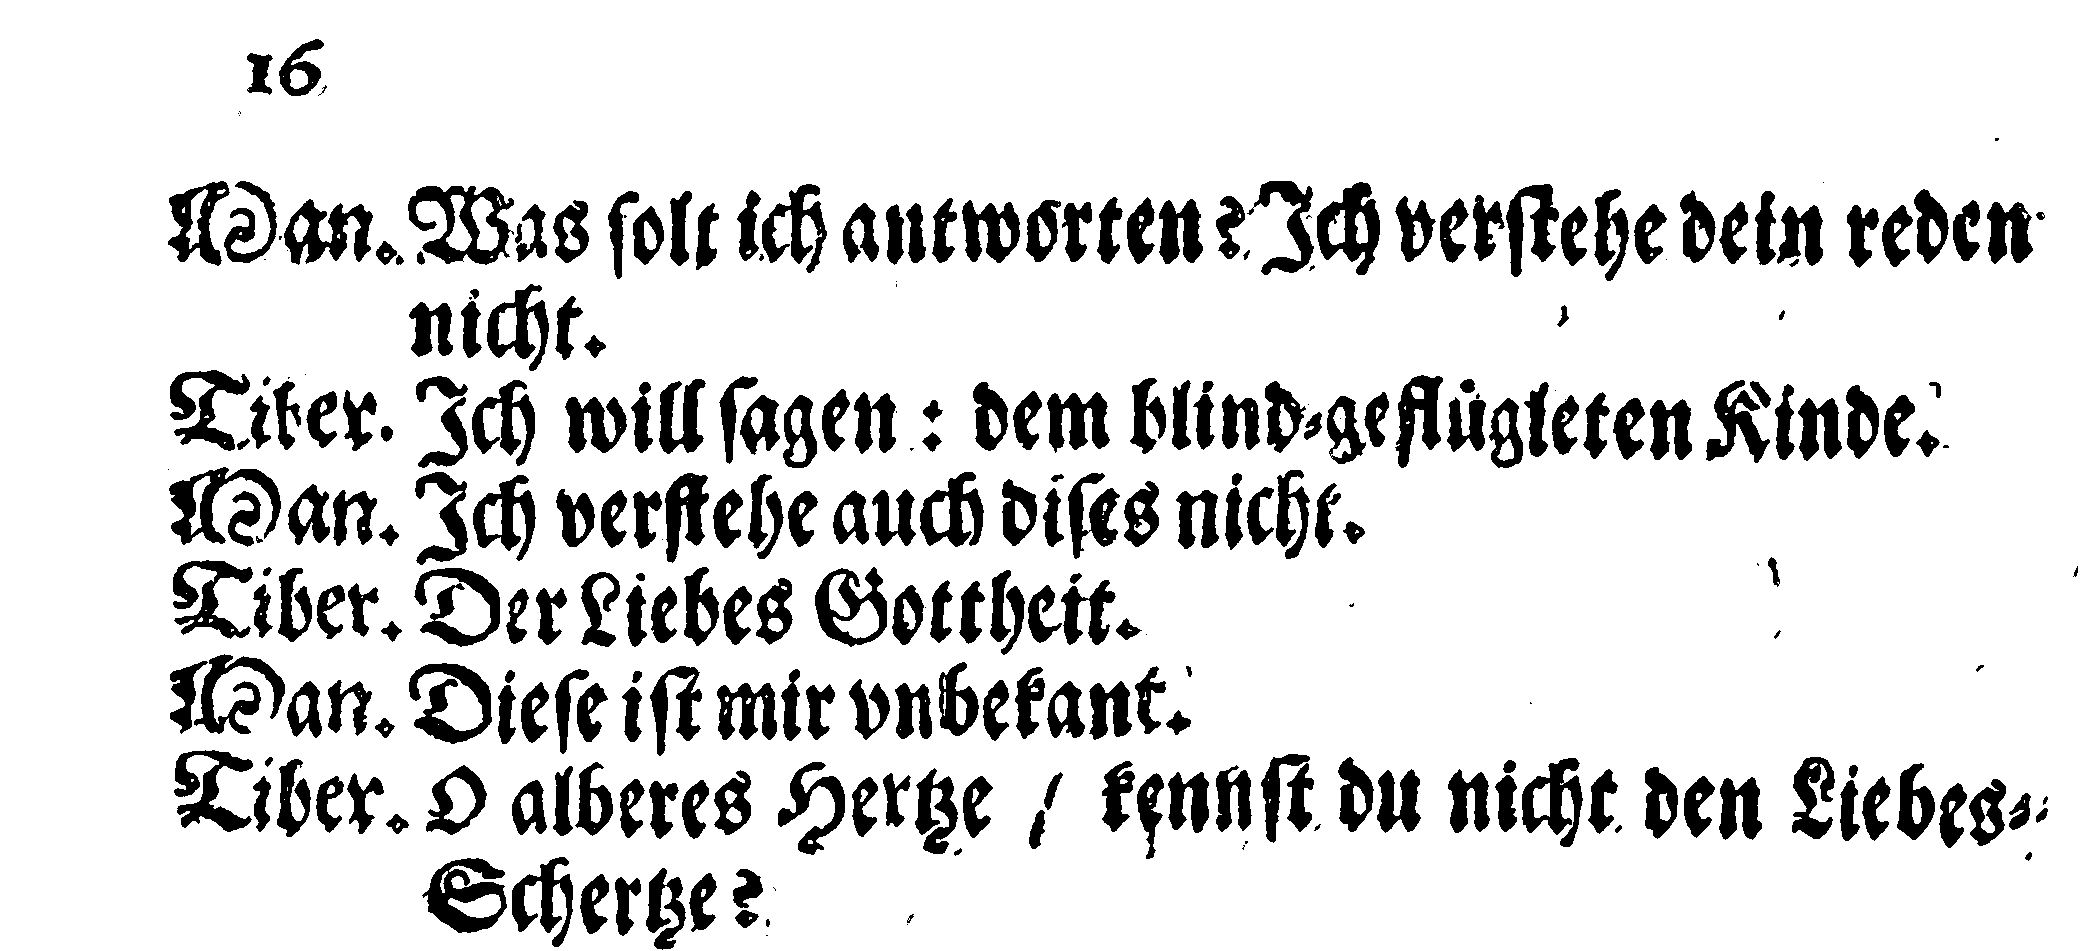 16
Man. Was ſolt ich antworten? Ich verſtehe dein reden
nicht.
Tiber. Ich will ſagen: dem blind-geflügleten Kinde.
Man. Ich verſtehe auch diſes nicht.
Tiber. Der Liebes Gottheit.
Man. Dieſe iſt mir vnbekant.
Tiber. O alberes Hertze / kennſt du nicht den Liebes-
Schertze?